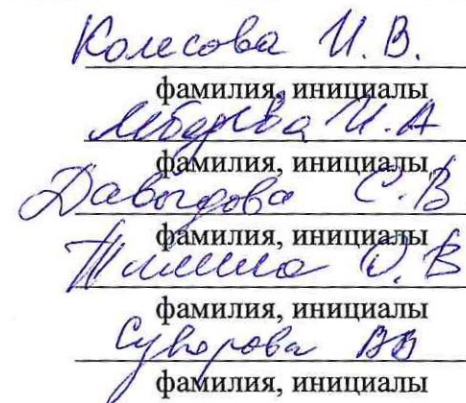 Колесова И. В.
фамилия, инициалы
Лебедева И. А
фамилия, инициалы
Давыдова С. В
фамилия, инициалы
О. В
фамилия, инициалы
Суворова ВВ
фамилия, инициалы